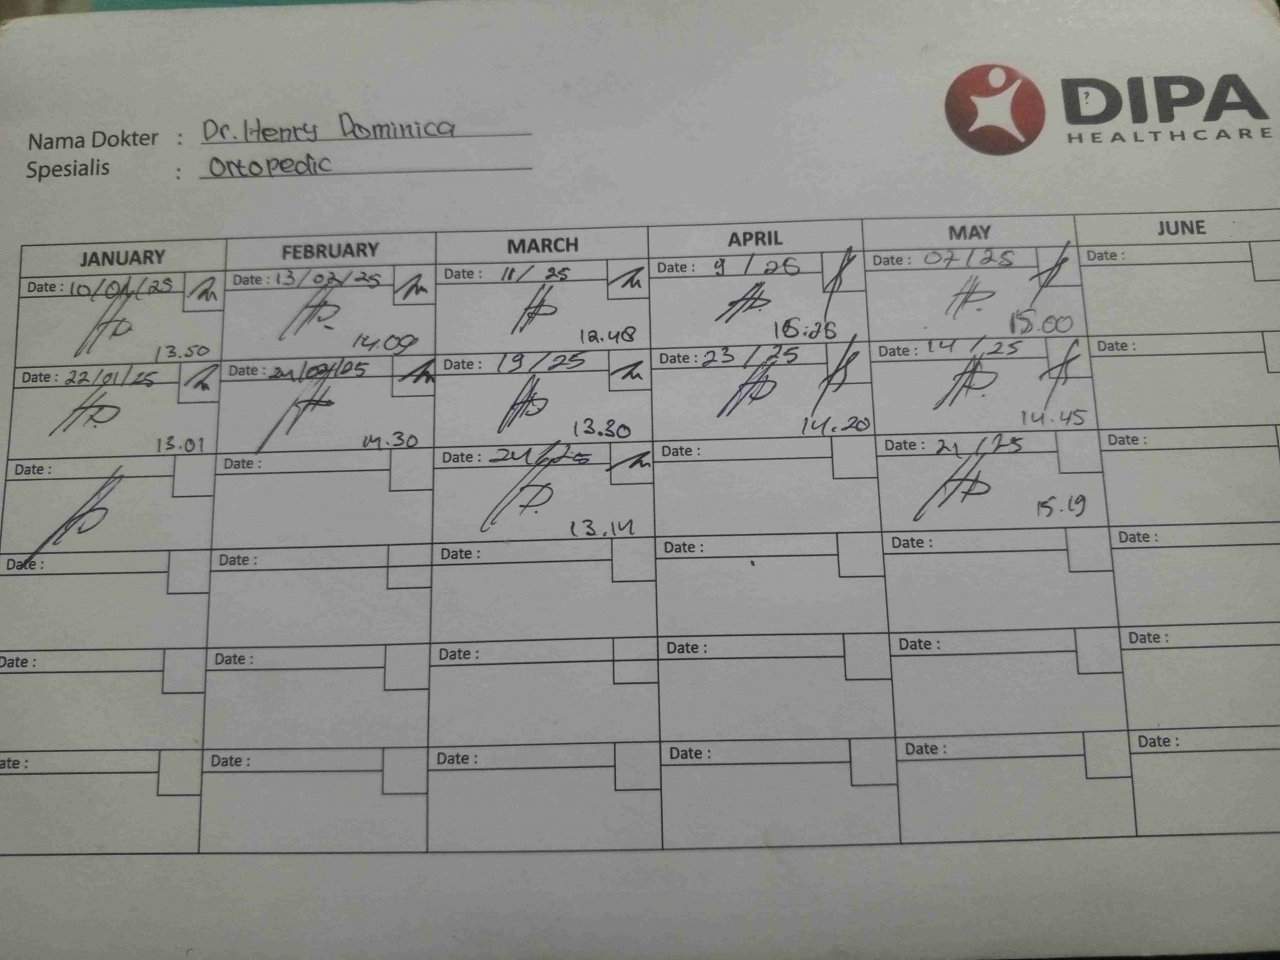 DIPA
HEALTHCARE
Nama Dokter : Dr. Henry Dominica
Spesialis : Ortopedic
JANUARY FEBRUARY MARCH APRIL MAY JUNE
Date : 10/01/25 Date : 13/02/25 Date : 11/ 25 Date : 9 / 25 Date : 07/25 Date :
13.50 14.09 12.48 15.00
Date : 22/01/25 Date : 24/02/25 Date : 19/25 Date : 23/25 Date : 14/25 Date :
13.01 14.30 13.30 14.20 14.45
Date : Date : Date : 24/25 Date : Date : 21/25 Date :
13.14 15.19
Date : Date : Date : Date : Date : Date :
Date : Date : Date : Date : Date : Date :
ate : Date : Date : Date : Date : Date :